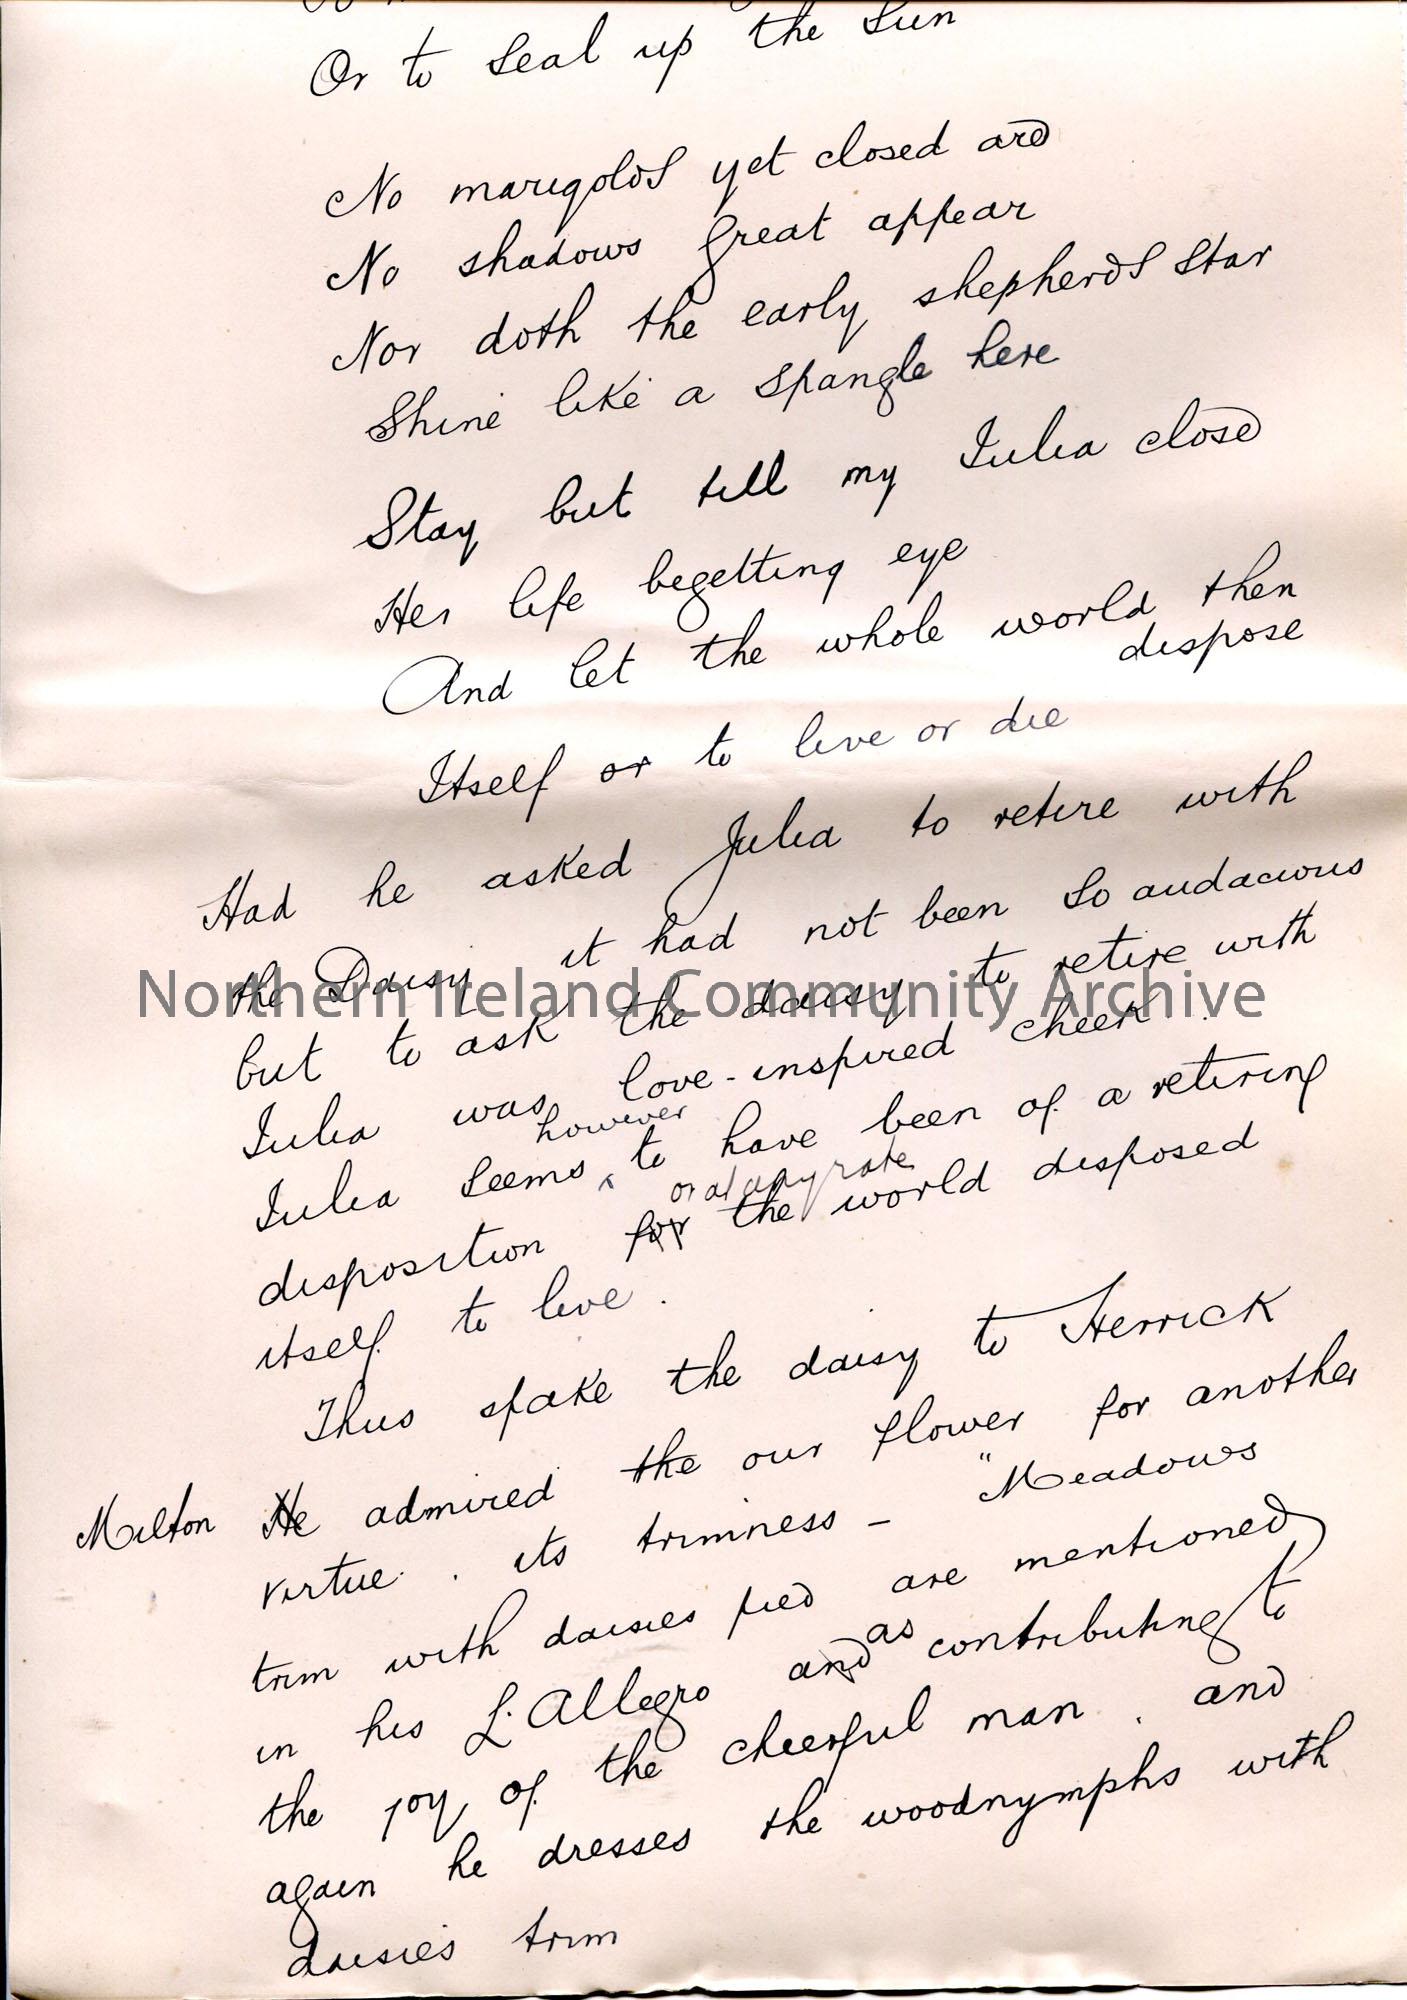 Or to seal up the Sun
No marigolds yet closed are
No shadows great appear
Nor doth the early shepherds star
Shine like a spangle here
Stay but till my Julia close
Her life begetting eye
And let the whole world then
dispose
Itself or to live or die
Had he asked Julia to retire with
the Daisy it had not been so audacious
but to ask the daisy to retire with
Julia was love-inspired cheek.
however
Julia seems to have been of a retiring
or at any rate
disposition for the world disposed
itself to live.
Thus spake the daisy to Herrick
Milton He admired the our flower for another
virtue. its trimness - "Meadows
trim with daisies pied are mentioned
in his L'Allegro and as contributing to
the joy of the cheerful man, and
again he dresses the woodnymphs with
daisies trim
Northern Ireland Community Archive